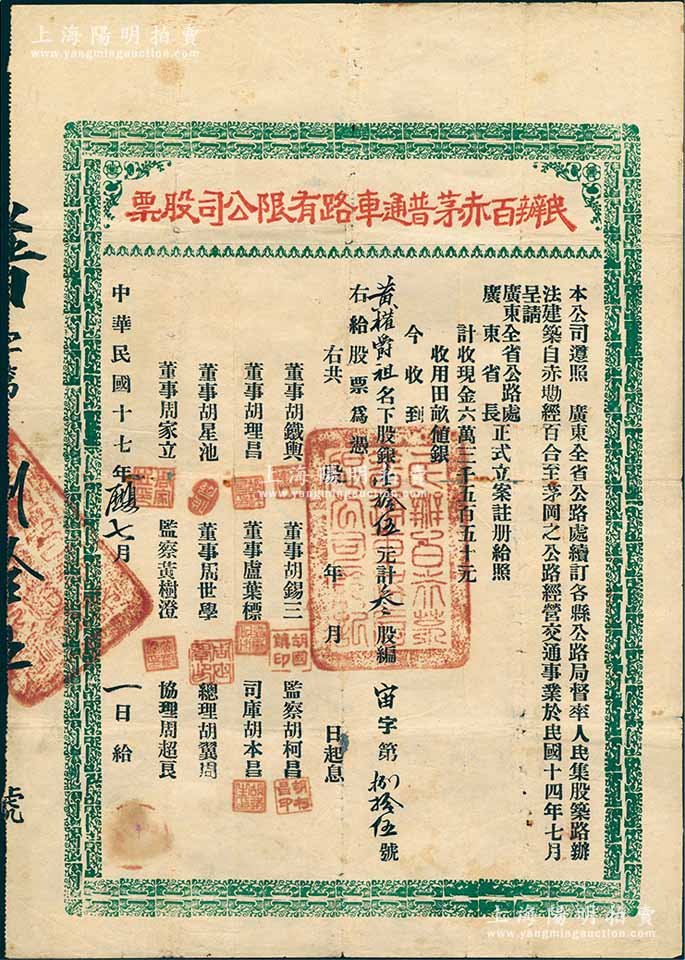 上海陽明拍賣
www.yangmingauction.com
民辦百赤茅普通車路有限公司股票
本公司遵照 廣東全省公路處續訂各縣公路局督率人民集股築路辦
法建築自赤墈經百合至茅岡之公路經營交通事業於民國十四年七月
呈請
廣東全省公路處
廣東省長
正式立案註册給照
計收現金六萬三千五百五十元
收用田畝値銀
今收到
黃權爵祖名下股銀 拾伍元計叁股編 宙字第捌拾伍號
右給股票爲憑
右共 年 月 日起息
董事胡鐵輿 董事胡錫三 監察胡柯昌
董事胡理昌 董事盧葉標 司庫胡本昌
董事胡星池 董事周世學 總理胡翼周
董事周家立 監察黃樹澄 協理周超良
中華民國十七年 七月一日給
號
上海陽明拍賣
www.yangmingauction.com